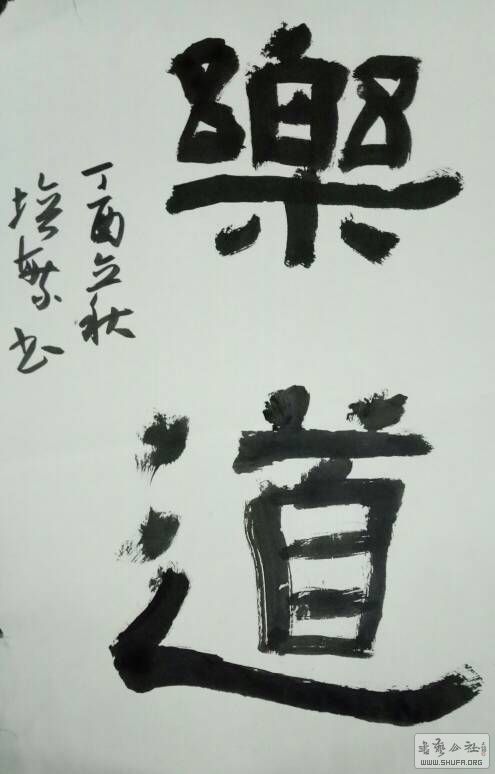 樂道
丁酉立秋
培繁书
書藝公社
WWW.SHUFA.ORG